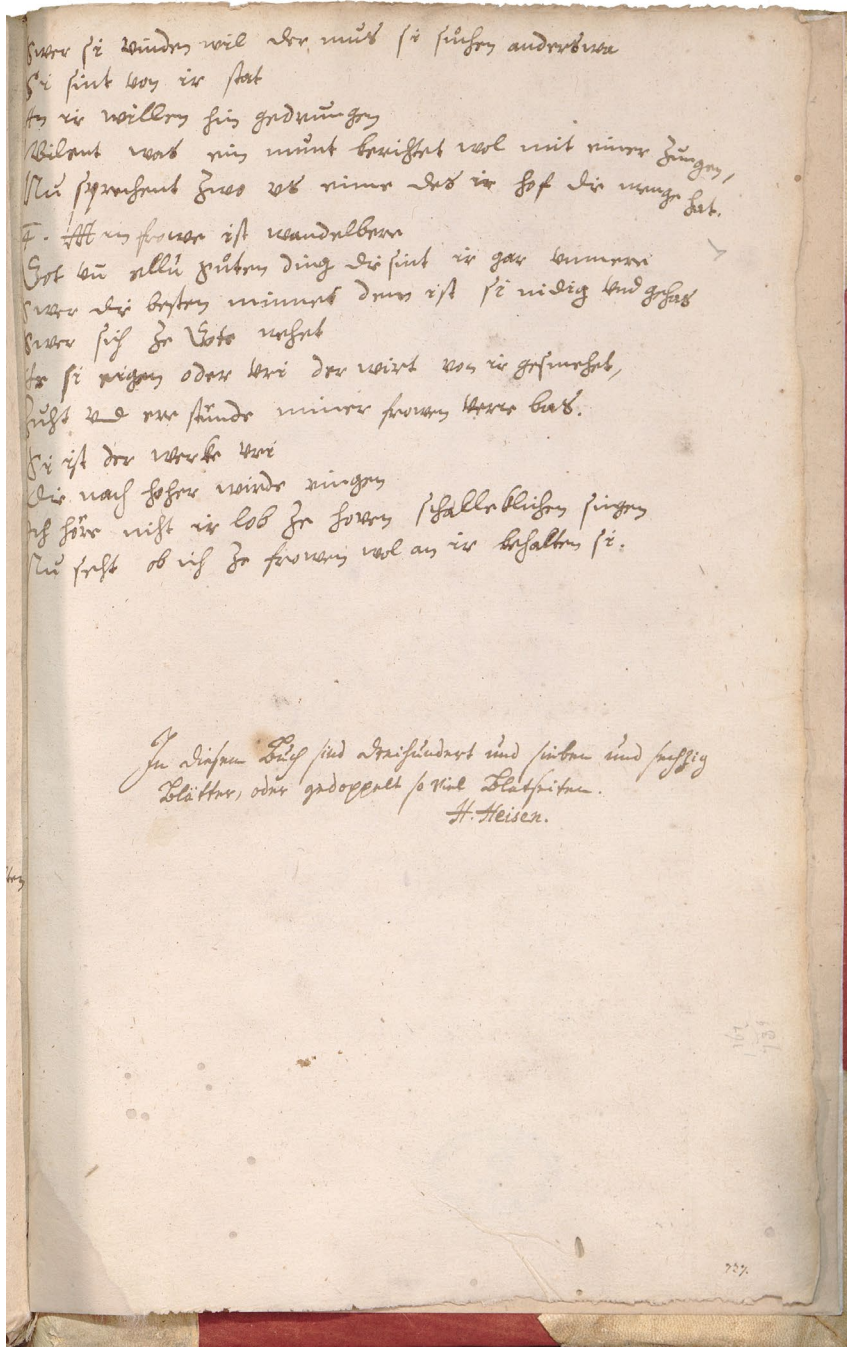 Swer si vinden wil der mus si sůchen anderswa
Si sint von ir stat
An ir willen hin gedrungen
Wilent was ein munt berihtet wol mit einer zungen,
Nu sprechent zwo us eime des ir hof die menge hat.
4. Min frowe ist wandelbere
Got vn̄ ellú gůten ding die sint ir gar vnmere
Swer die besten minnet dem ist si nidig vnd gehas
Swer sich ze Gote nehet
Er si eigen oder vri der wirt von ir gesmehet,
Zuht vnd ere stúnde miner frowen verre bas.
Si ist der werke vri
Die nach hoher wirde ringen
Ich hóre niht ir lob ze hoven schalleklichen singen
Nu seht ob ich ze frowen wol an ir behalten si.
In diesem Buch sind dreihundert und sieben und sechzig
Blätter, oder gedoppelt so viel Blatseiten.
H. Heisen.
ten
737.